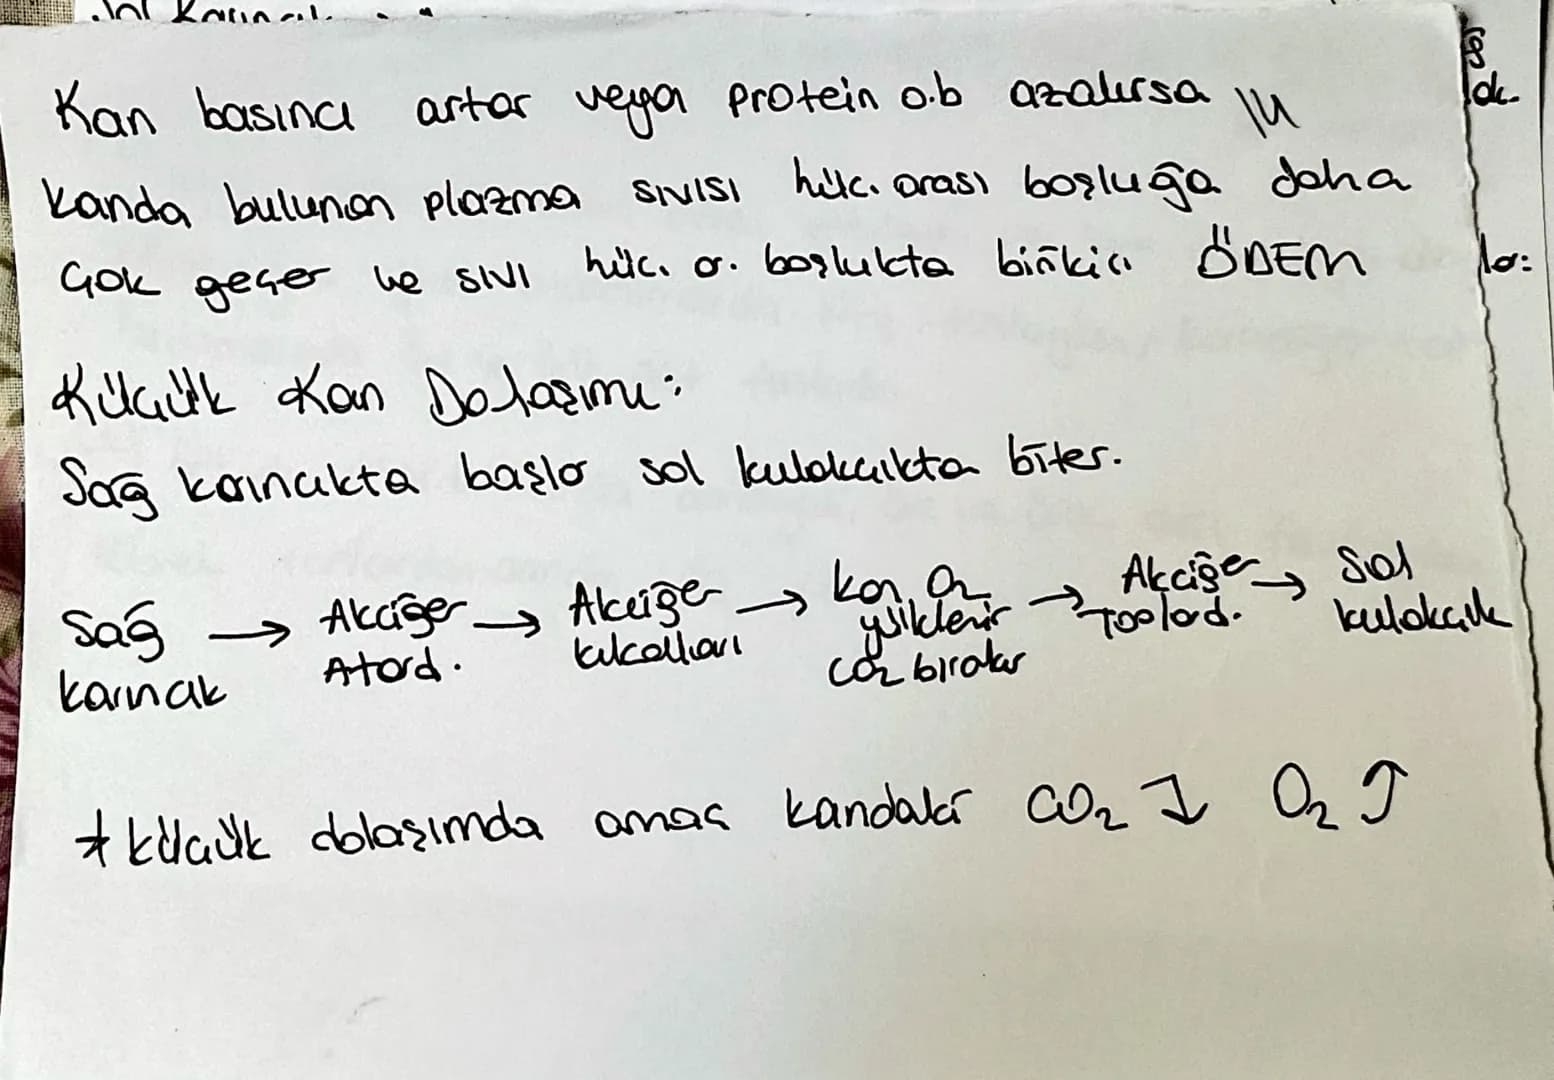 Kan basıncı artar veya protein o.b azalırsa
kanda bulunan plazma sıvısı hüc. arası boşluğa daha
çok geçer ve sıvı hüc. a. boşlukta birikici ÖDEM
Küçük Kan Dolaşımı:
Sağ karıncıkta başlar sol kulakçıkta biter.
Sağ karıncık → Akciğer Atard. → Akciğer kılcalları → kan O2 yüklenir CO2 bırakır → Akciğer Toplard. → Sol kulakçık
* küçük dolaşımda amaç kandaki CO2 ↓ O2 ↑